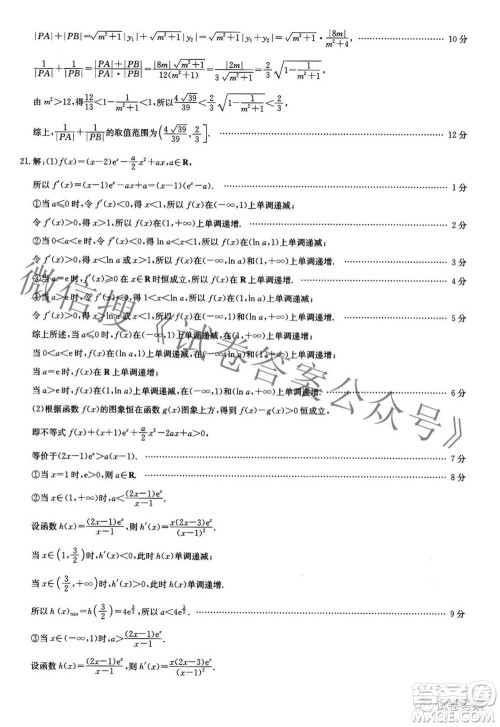 |PA|+|PB|=√(m²+1)|y₁|+√(m²+1)|y₂|=√(m²+1)|y₁+y₂|=√(m²+1)·|8m|/(m²+4), 10分
1/|PA|+1/|PB|=(|PA|+|PB|)/(|PA|·|PB|)=|8m|√(m²+1)/(12(m²+1))=|2m|/(3√(m²+1))=(2/3)√(1-1/(m²+1)).
由 m²>12,得 12/13<1-1/(m²+1)<1,所以 4√39/39<(2/3)√(1-1/(m²+1))<2/3.
综上,1/|PA|+1/|PB| 的取值范围为(4√39/39, 2/3]. 12分
21.解:(1)f(x)=(x-2)eˣ-(a/2)x²+ax,a∈R,
所以 f′(x)=(x-1)eˣ-ax+a=(x-1)(eˣ-a). 1分
①当 a≤0 时,令 f′(x)<0,得 x<1,所以 f(x)在(-∞,1)上单调递减;
令 f′(x)>0,得 x>1,所以 f(x)在(1,+∞)上单调递增. 2分
令 f′(x)<0,得 ln a<x<1,所以 f(x)在(ln a,1)上单调递减;
③当 a=e 时,f′(x)≥0 在 x∈R 时恒成立,所以 f(x)在 R 上单调递增. 4分
令 f′(x)<0,得 1<x<ln a,所以 f(x)在(1,ln a)上单调递减. 5分
综上所述,当 a≤0 时,f(x)在(-∞,1)上单调递减,在(1,+∞)上单调递增;
当 0<a<e 时,f(x)在(ln a,1)上单调递减,在(-∞,ln a)和(1,+∞)上单调递增;
当 a=e 时,f(x)在 R 上单调递增;
当 a>e 时,f(x)在(1,ln a)上单调递减,在(-∞,1)和(ln a,+∞)上单调递增. 6分
(2)根据函数 f(x)的图象恒在函数 g(x)的图象上方,得 f(x)-g(x)>0 恒成立,
即不等式 f(x)+(x+1)eˣ+(a/2)x²-2ax+a>0 恒成立,
等价于(2x-1)eˣ>a(x-1)恒成立. 7分
①当 x=1 时,e>0,所以 a∈R. 8分
②当 x∈(1,+∞)时,a<(2x-1)eˣ/(x-1).
设函数 h(x)=(2x-1)eˣ/(x-1),则 h′(x)=x(2x-3)eˣ/(x-1)².
当 x∈(1,3/2)时,h′(x)<0,此时 h(x)单调递减;
当 x∈(3/2,+∞)时,h′(x)>0,此时 h(x)单调递增.
所以 h(x)min=h(3/2)=4e^(3/2),所以 a<4e^(3/2). 9分
设函数 h(x)=(2x-1)eˣ/(x-1),则 h′(x)=x(2x-3)eˣ/(x-1)².
微信搜《试卷答案公众号》
MXQE.COM